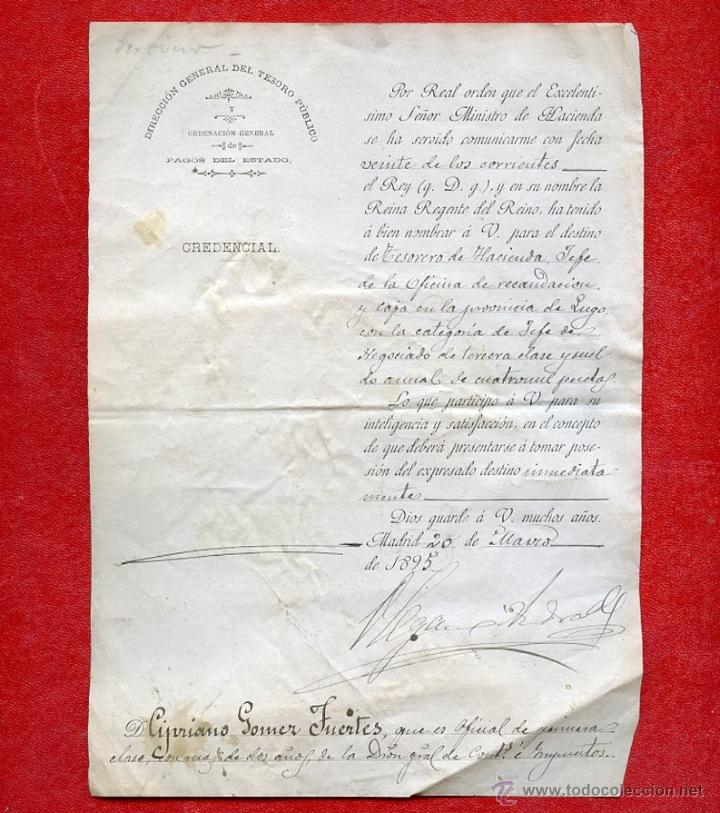 DIRECCIÓN GENERAL DEL TESORO PÚBLICO
Y
ORDENACIÓN GENERAL
de
PAGOS DEL ESTADO,
CREDENCIAL.
Por Real orden que el Excelentí-
simo Señor Ministro de Hacienda
se ha servido comunicarme con fecha
veinte de los corrientes
el Rey (q. D. g.), y en su nombre la
Reina Regente del Reino, ha tenido
á bien nombrar á V. para el destino
de Tesorero de Hacienda, Jefe
de la Oficina de recaudacion
y caja en la provincia de Lugo
con la categoría de Jefe de
Negociado de tercera clase y suel-
do anual de cuatro mil pesetas
Lo que participo á V. para su
inteligencia y satisfacción, en el concepto
de que deberá presentarse á tomar pose-
sión del expresado destino inmediata-
mente
Dios guarde á V. muchos años.
Madrid 20 de Marzo
de 1895
D. Cipriano Gomez Fuertes, que es Oficial de primera
clase, con mas de dos años de la Dirón gral de Cont.s é Impuestos.
www.todocoleccion.net